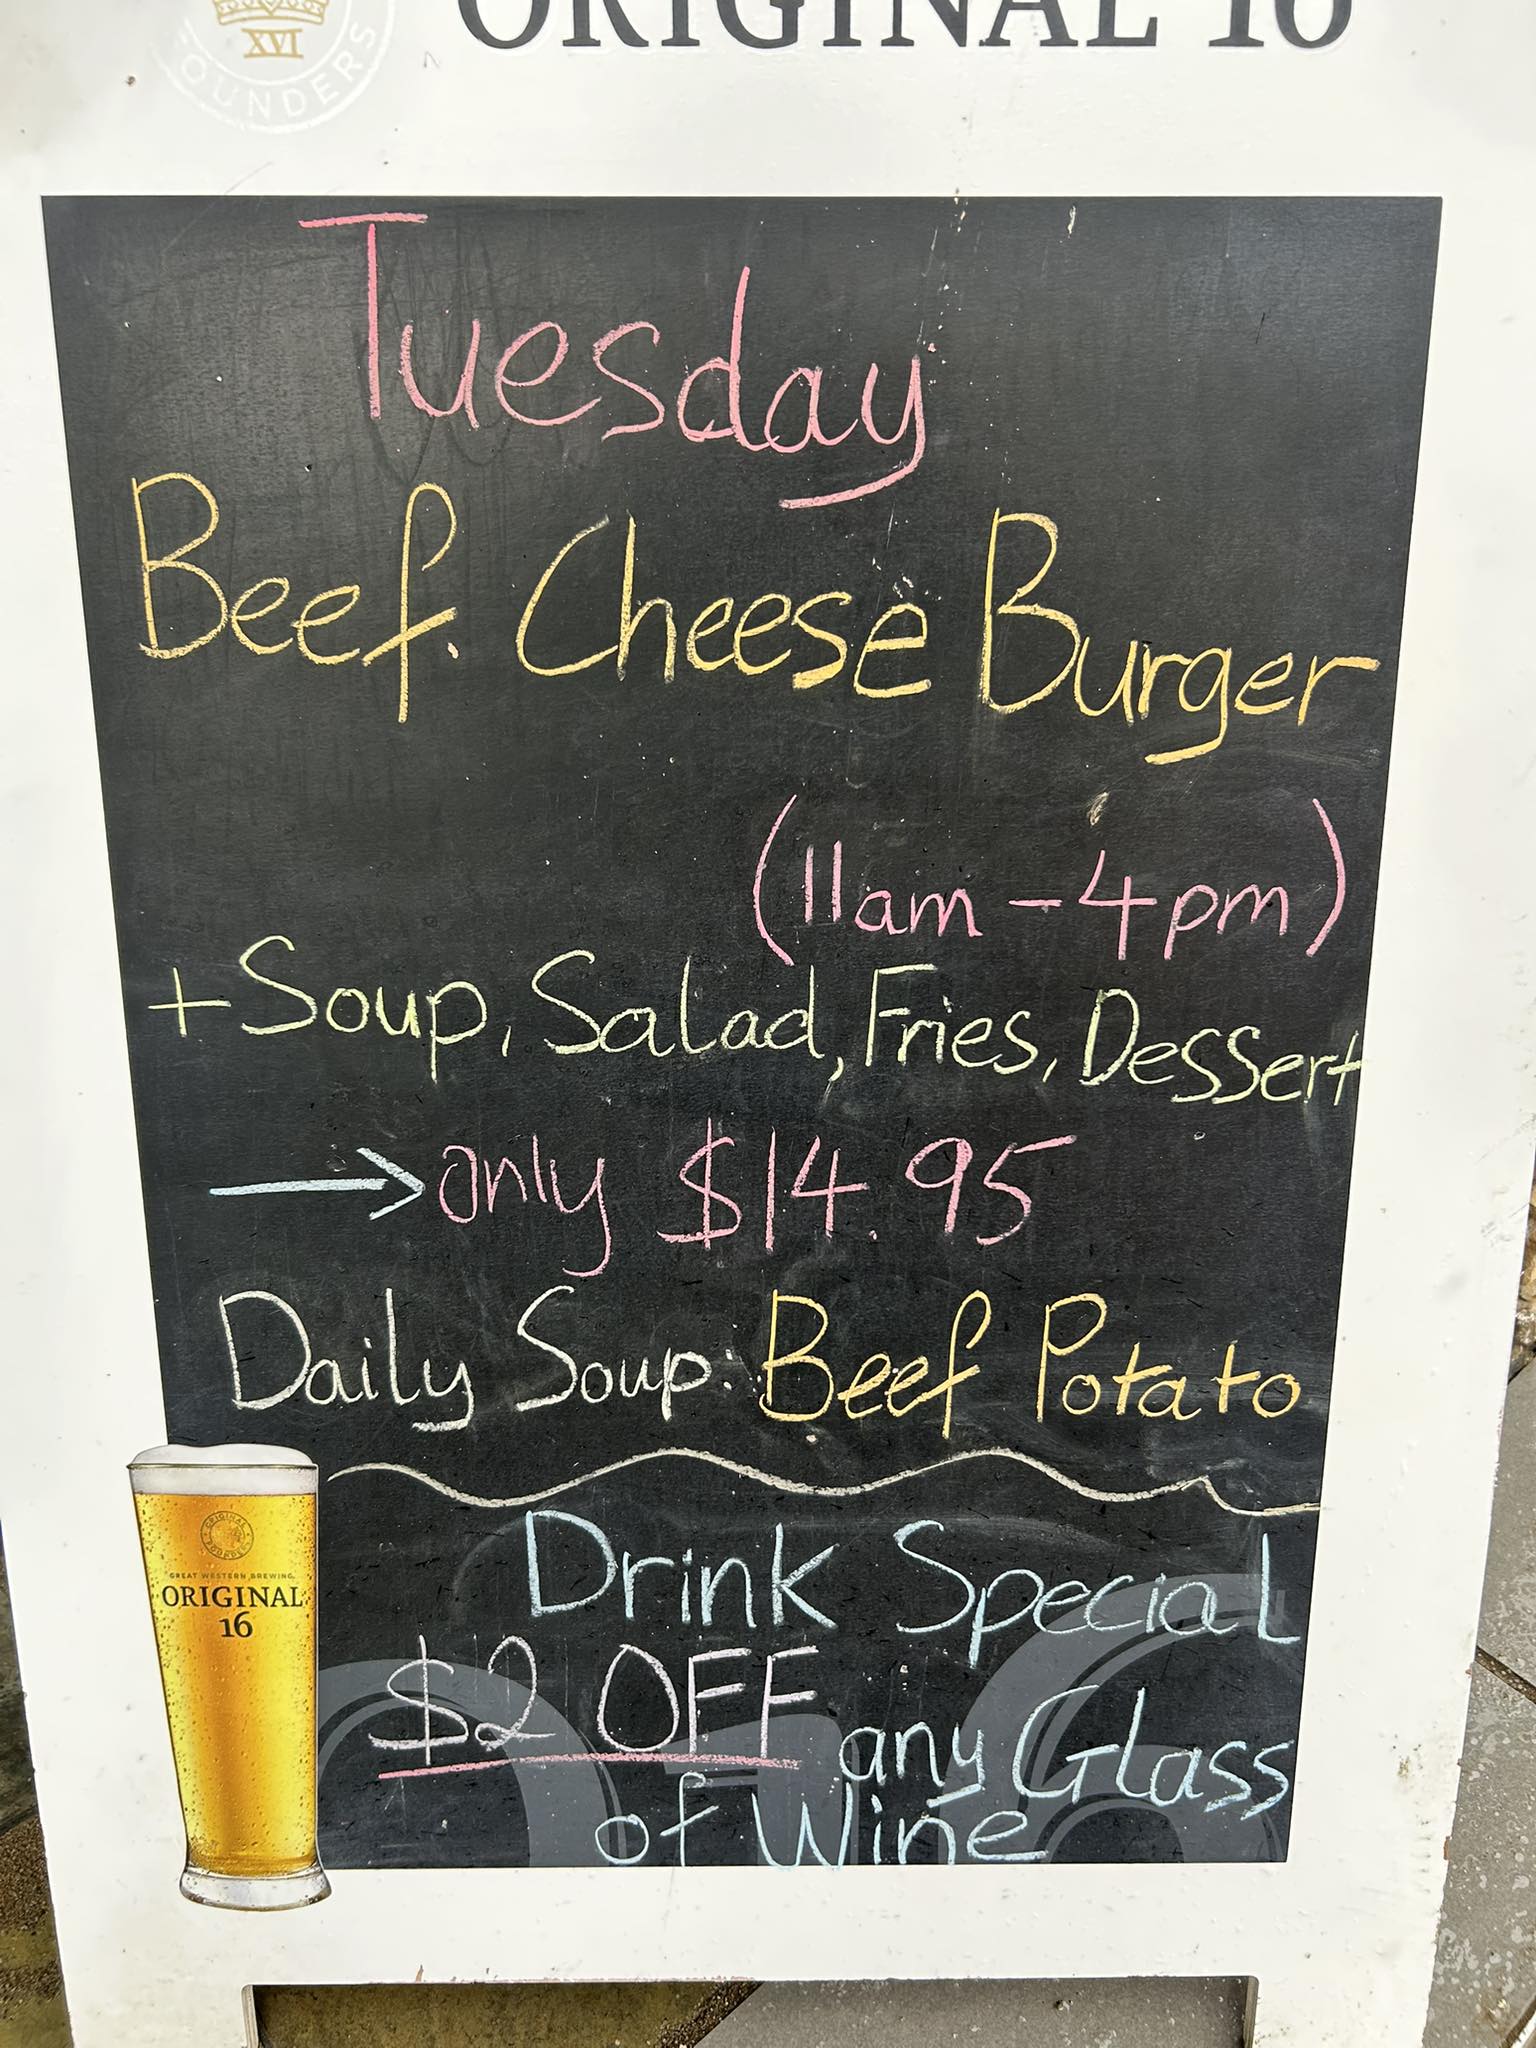 XVI
OUNDERS
ORIGINAL 16
Tuesday
Beef. Cheese Burger
(11am - 4pm)
+ Soup, Salad, Fries, Dessert
→ only $14.95
Daily Soup: Beef Potato
Drink Special
$2 OFF any Glass
of Wine
ORIGINAL
FOUNDERS
GREAT WESTERN BREWING
ORIGINAL
16